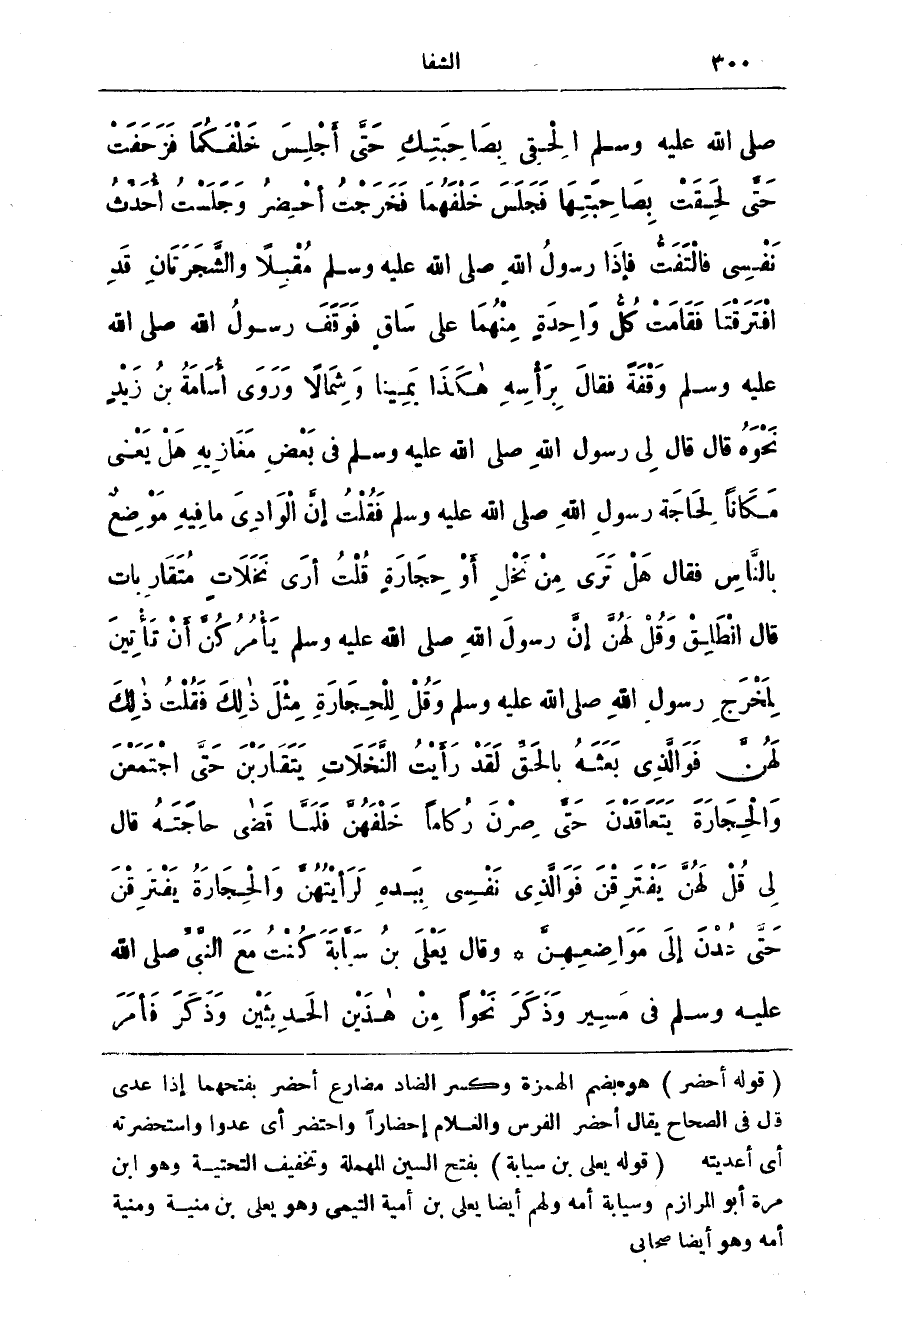 ٣٠٠ الشفا
صلى الله عليه وسلم الْحَقِى بِصَاحِبَتِكِ حَتَّى أَجْلِسَ خَلْفَكُمَا فَزَحَفَتْ
حَتَّى لَحِقَتْ بِصَاحِبَتِهَا فَجَلَسَ خَلْفَهُمَا فَخَرَجْتُ أُحْضِرُ وَجَلَسْتُ أُحَدِّثُ
نَفْسِى فالْتَفَتُّ فإذَا رسولُ اللهِ صلى الله عليه وسلم مُقْبِلًا والشَّجَرَتَانِ قَدِ
افْتَرَقَتَا فَقَامَتْ كُلُّ وَاحِدَةٍ مِنْهُمَا على سَاقٍ فَوَقَفَ رسولُ الله صلى الله
عليه وسلم وَقْفَةً فقالَ بِرَأْسِهِ هٰكَذَا يَمِينا وَشِمَالًا وَرَوَى أُسَامَةُ بنُ زَيْدٍ
نَحْوَهُ قال قال لِى رسول اللهِ صلى الله عليه وسلم فى بَعْضِ مَغَازِيهِ هَلْ يَعْنى
مَكَاناً لِحَاجَة رسولِ اللهِ صلى الله عليه وسلم فَقُلْتُ إنَّ الْوَادِىَ ما فيهِ مَوْضِعٌ
بالنَّاسِ فقال هَلْ تَرَى مِنْ نَخْلٍ أَوْ حِجَارَةٍ قُلْتُ أرَى نَخَلَاتٍ مُتَقَارِبات
قال انْطَلِقْ وَقُلْ لَهُنَّ إنَّ رسولَ اللهِ صلى الله عليه وسلم يَأْمُرُكُنَّ أَنْ تَأْتِينَ
لِمَخْرَجِ رسولِ اللهِ صلى الله عليه وسلم وَقُلْ لِلْحِجَارَةِ مِثْلَ ذٰلِكَ فَقُلْتُ ذٰلِكَ
لَهُنَّ فَوَالَّذِى بَعَثَهُ بالحَقِّ لَقَدْ رَأَيْتُ النَّخَلَاتِ يَتَقَارَبْنَ حَتَّى اجْتَمَعْنَ
وَالْحِجَارَةَ يَتَعَاقَدْنَ حَتَّى صِرْنَ رُكاماً خَلْفَهُنَّ فَلَمَّا قَضَى حاجَتَهُ قال
لِى قُلْ لَهُنَّ يَفْتَرِقْنَ فَوَالَّذِى نَفْسِى بِيَدِهِ لَرَأَيْتُهُنَّ وَالْحِجَارَةُ يَفْتَرِقْنَ
حَتَّى عُدْنَ إلَى مَوَاضِعِهِنَّ * وقال يَعْلَى بنُ سَيَّابَةَ كُنْتُ مَعَ النَّبىِّ صلى الله
عليه وسلم فى مَسِيرٍ وَذَكَرَ نَحْواً مِنْ هٰذَيْنِ الحَدِيثَيْنِ وَذَكَرَ فَأَمَرَ
( قوله أحضر ) هو بضم الهمزة وكسر الضاد مضارع أحضر بفتحهما إذا عدى
قال فى الصحاح يقال أحضر الفرس والغلام إحضاراً واحتضر أى عدوا واستحضرته
أى أعديته ( قوله يعلى بن سيابة ) بفتح السين المهملة وتخفيف التحتية وهو ابن
مرة أبو المرازم وسيابة أمه ولهم أيضا يعلى بن أمية التيمى وهو يعلى بن منية ومنية
أمه وهو أيضا صحابى